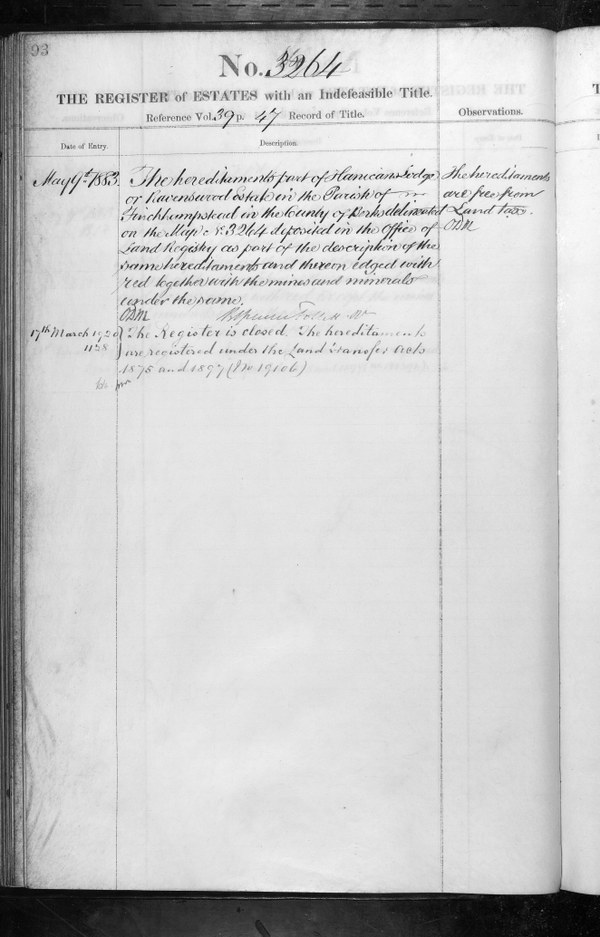 93
No. 3264
THE REGISTER of ESTATES with an Indefeasible Title.
Reference Vol. 39 p. 47 Record of Title.
Observations.
Date of Entry.
Description.
May 9th 1883.
The hereditaments part of Hannicans Lodge
or Ravenswood Estate in the Parish of
Finchhampstead in the County of Berks delineated
on the Map No. 3264 deposited in the Office of
Land Registry as part of the description of the
same hereditaments and thereon edged with
red together with the mines and minerals
under the same.
The hereditaments
are free from
Land tax.
17th March 1920
1128
The Register is closed. The hereditaments
are registered under the Land Transfer Acts
1875 and 1897 (No 19106)